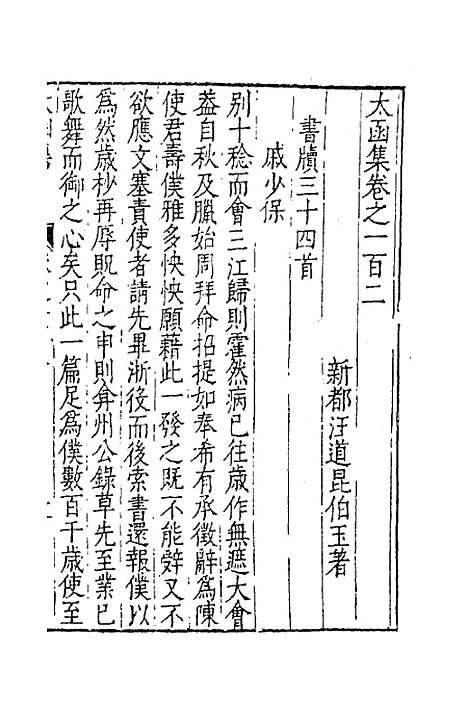 太函集卷之一百二
新都汪道昆伯玉著
書牘三十四首
戚少保
別十稔而會三江歸則霍然病已往歲作無遮大會
葢自秋及臘始周拜命招提如奉希有承徵辭為陳
使君壽僕雅多怏怏願藉此一發之既不能辤又不
欲應文塞責使者請先畀浙後而後索書還報僕以
為然歲杪再辱貺命之申則弇州公錄草先至業已
歌舞而御之心矣只此一篇足為僕數百千歲使至